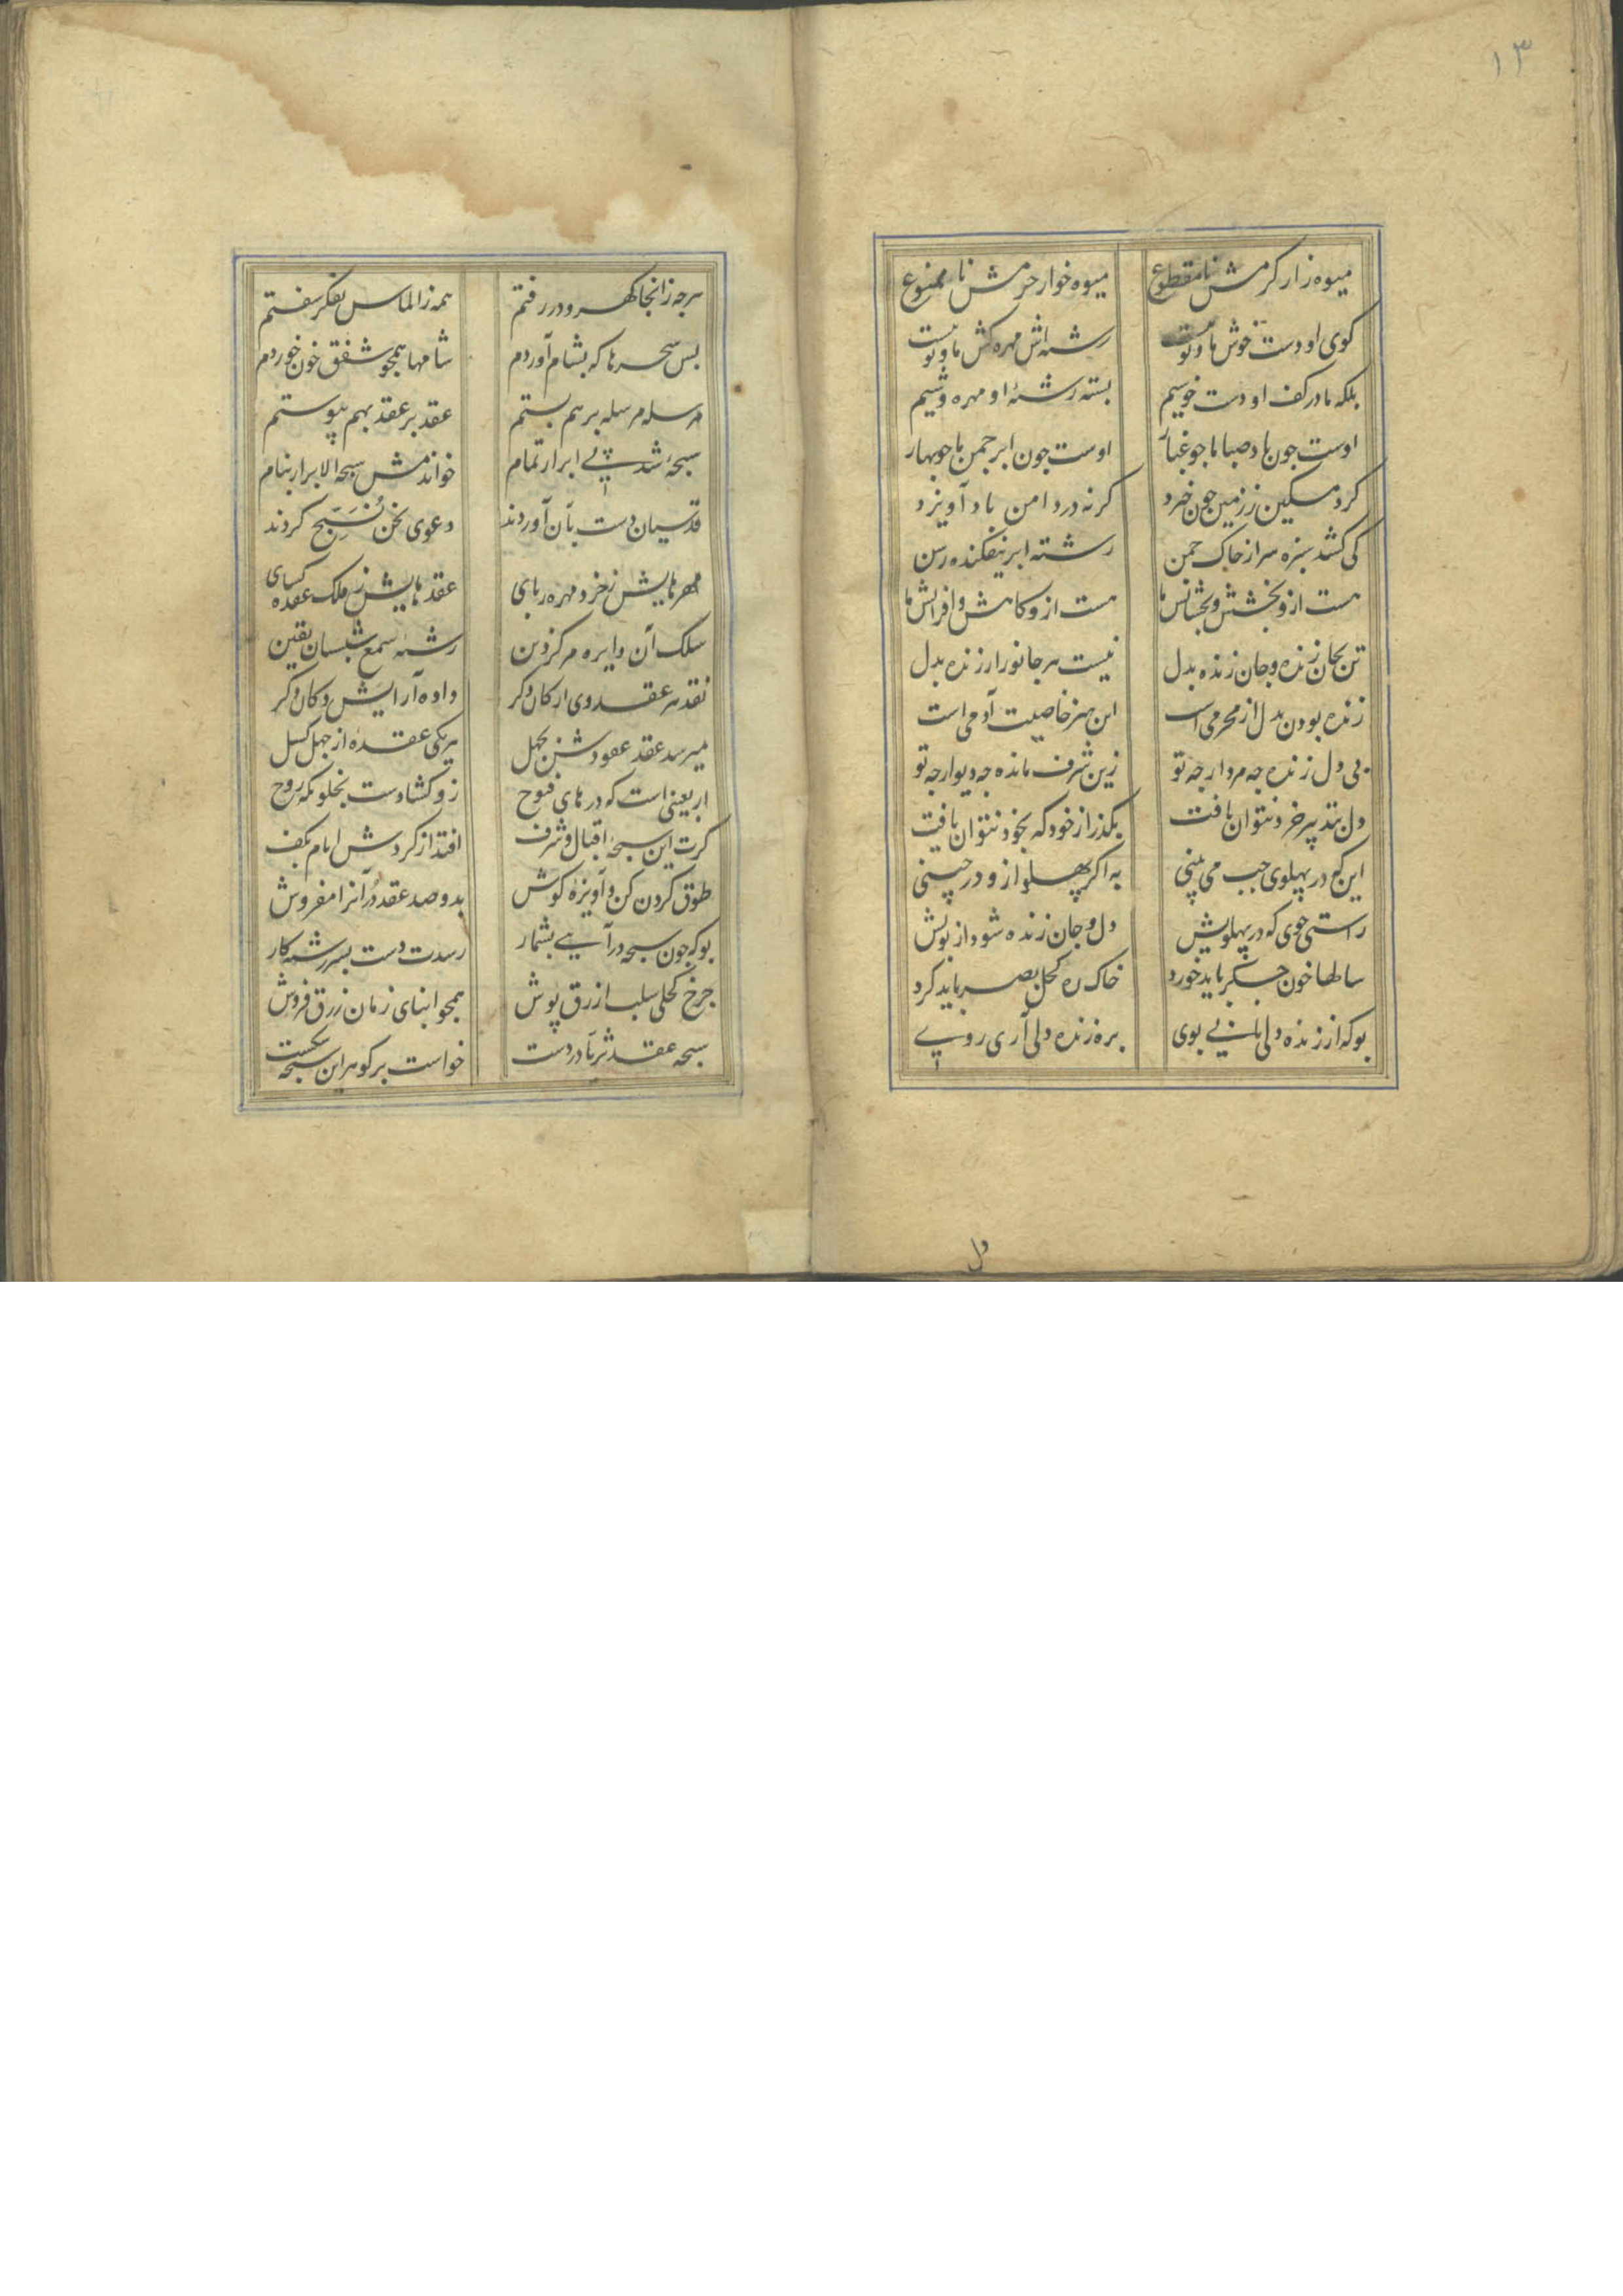 ۱۳
میوه زار کرمش نامقطوع
میوه خوار حرمش نا ممنوع
کوی او دست خوش ما و تو نیست
رشته اش مهره کش ما و تو نیست
بلکه ما در کف او دست خوشیم
بسته رشتهٔ او مهره وشیم
اوست جون باد صبا ما جو غبار
اوست جون ابر جمن ما جو بهار
کرد مسکین ز زمین جون خیزد
کرنه در دامن باد آویزد
کی کشد سبزه سر از خاک جمن
رشته ابر نیفکنده رسن
هست ازو بخشش و بخشایش ما
هست ازو کاهش و افزایش ما
تن بجان زنده و جان زنده بدل
نیست هر جانور ارزنده بدل
زنده بودن بدل از محرمی است
این هنر خاصیت آدمی است
بی دل زنده جه مردار جه تو
زین شرف مانده جه دیوار جه تو
دل بتدبیر خرد نتوان یافت
بکذر از خود که بخود نتوان یافت
این که در پهلوی جب می بینی
به اکر پهلو ازو در چینی
راستی جوی که در پهلویش
دل و جان زنده شود از بویش
سالها خون جکر باید خورد
خاک ره کحل بصر باید کرد
بو که از زنده دلی یابی بوی
بره زنده دلی آری روی
دل
هرجه زانجا کهر و در رفتم
همه ز الماس تفکر سفتم
بس سحرها که بشام آوردم
شامها همجو شفق خون خوردم
مرسله مرسله برهم بستم
عقد بر عقد بهم پیوستم
سبحهٔ شد پی ابرار تمام
خواندمش سبحة الابرار بنام
قدسیان دست بآن آوردند
دعوی نحن نُسَبِّح کردند
مهرهایش ز خرد مهره ربای
عقدهایش ز فلک عقده کشای
سلک آن دایره مرکز دین
رشتهٔ شمع شبستان یقین
نقد هر عقد وی از کان دکر
داده آرایش دکان دکر
میرسد عقد عقودش بجهل
هر یکی عقدهٔ از جهل کسل
اربعینی است که درهای فتوح
زو کشادست بخلوتکه روح
کرت این سبحهٔ اقبال و شرف
افتد از کردش ایام بکف
طوق کردن کن و آویزهٔ کوش
بدو صد عقد دُر آنرا مفروش
بو که جون سبحه درآیی بشمار
رسدت دست بسررشته کار
جرخ کحلی سلب ازرق پوش
همجو ابنای زمان زرق فروش
سبحه عقد ثریا در دست
خواست بر کوهر این سبحه شکست